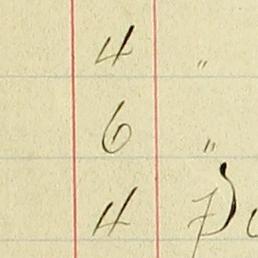 4 "
6 "
4